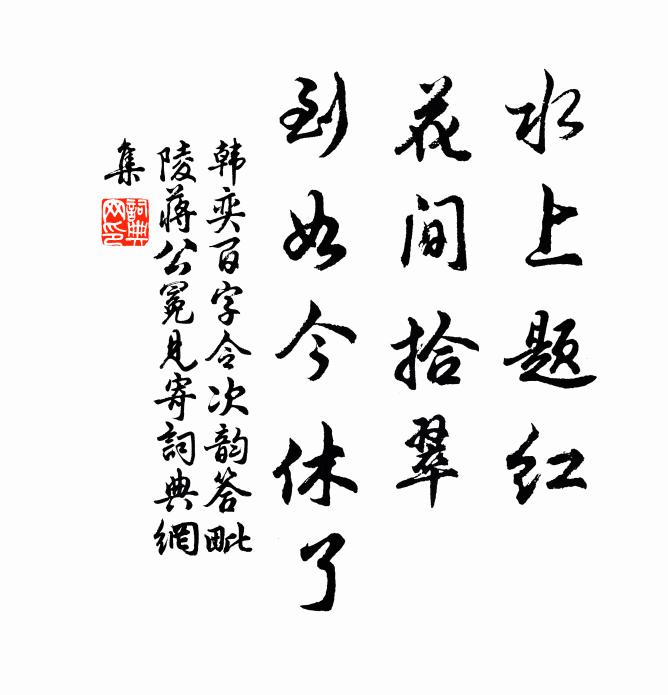 水上题红
花间拾翠
到如今休了
韩奕百字令次韵答毗
陵蒋公冕见寄詞典網
集
詞典
网印